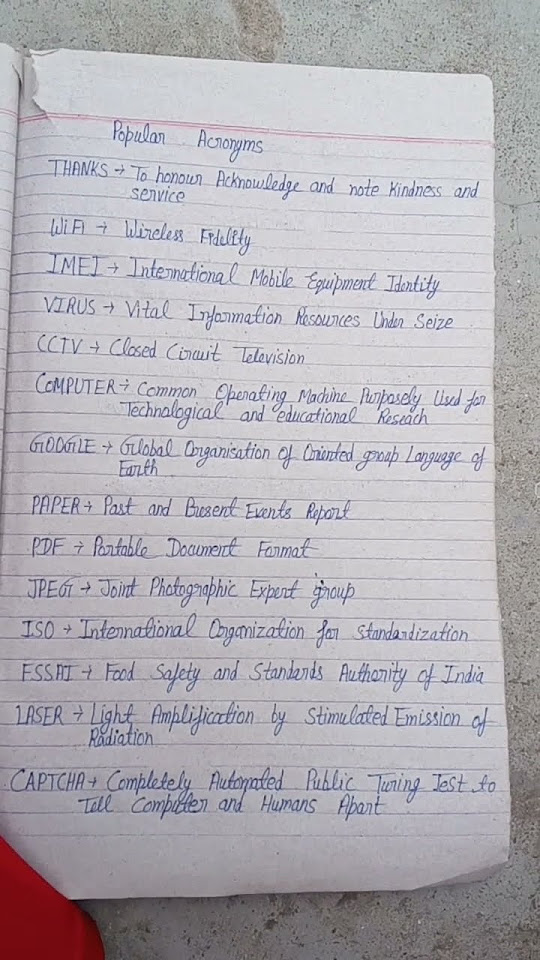 Popular Acronyms
THANKS → To honour Acknowledge and note Kindness and
service
WiFi → Wireless Fidelity
IMEI → International Mobile Equipment Identity
VIRUS → Vital Information Resources Under Seize
CCTV → Closed Circuit Television
COMPUTER → Common Operating Machine Purposely Used for
Technological and educational Reseach
GOOGLE → Global Organisation of Oriented group Language of
Earth
PAPER → Past and Present Events Report
PDF → Portable Document Format
JPEG → Joint Photographic Expert group
ISO → International Organization for Standardization
FSSAI → Food Safety and Standards Authority of India
LASER → Light Amplification by Stimulated Emission of
Radiation
CAPTCHA → Completely Automated Public Turing Test to
Tell Computer and Humans Apart